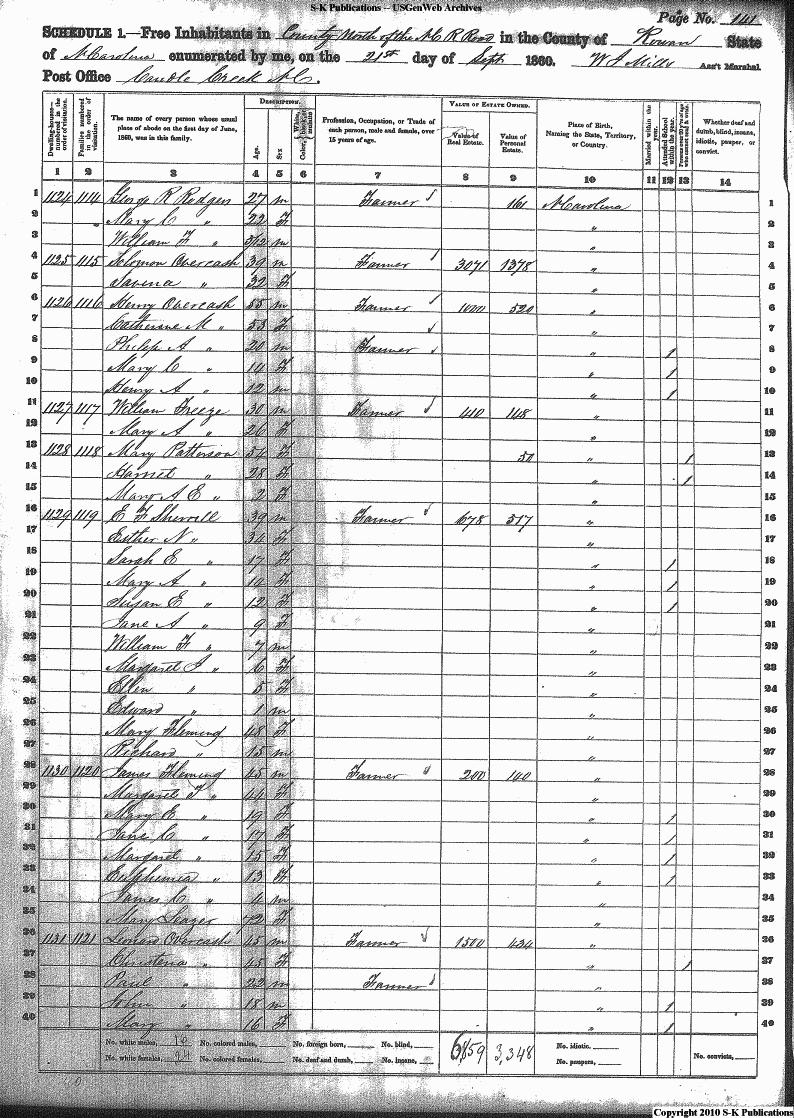 S-K Publications -- USGenWeb Archives
Page No. 141
SCHEDULE 1.—Free Inhabitants in County North of the N C R Road in the County of Rowan State
of N Carolina enumerated by me, on the 21st day of Sept. 1860. Ass't Marshal.
Post Office Creek N C.
DESCRIPTION. VALUE OF ESTATE OWNED.
Dwelling-houses— numbered in the order of visitation. Families numbered in the order of visitation. The name of every person whose usual place of abode on the first day of June, 1860, was in this family. Age. Sex Color Profession, Occupation, or Trade of each person, male and female, over 15 years of age. Value of Real Estate. Value of Personal Estate. Place of Birth, Naming the State, Territory, or Country. Married within the year. Attended School within the year. Whether deaf and dumb, blind, insane, idiotic, pauper, or convict.
1 2 3 4 5 6 7 8 9 10 11 12 13 14
1 1124 1114 George R Rodgers 27 m Farmer 161 N Carolina 1
2 Mary C " 22 F " 2
3 William F " 3/12 m " 3
4 1125 1115 Solomon Overcash 39 m Farmer 3071 1378 " 4
5 Savena " 32 F " 5
6 1126 1116 Henry Overcash 55 m Farmer 1000 520 " 6
7 Catherine M " 53 F " 7
8 Philip A " 20 m Farmer " 1 8
9 Mary C " 14 F " 1 9
10 Henry A " 12 m " 1 10
11 1127 1117 William Freeze 30 m Farmer 410 148 " 11
12 Mary A " 26 F " 12
13 1128 1118 Mary Patterson 54 F 50 " 1 13
14 Harriet " 28 F " 1 14
15 Mary A E " 2 F " 15
16 1129 1119 E F Sherrill 39 m Farmer 678 517 " 16
17 Esther N " 34 F " 17
18 Sarah E " 17 F " 1 18
19 Mary A " 14 F " 1 19
20 Susan E " 12 F " 1 20
21 Jane A " 9 F " 21
22 William F " 7 m " 22
23 Margaret J " 6 F " 23
24 Ellen " 5 F " 24
25 Edward " 1 m " 25
26 Mary Fleming 48 F " 26
27 Richard " 15 m " 27
28 1130 1120 James Fleming 45 m Farmer 200 140 " 28
29 Margaret T " 44 F " 29
30 Mary E " 19 F " 1 30
31 Jane C " 17 F " 1 31
32 Margaret " 15 F " 1 32
33 Euphemia " 13 F " 1 33
34 James C " 4 m " 34
35 Mary Seazer 72 F " 35
36 1131 1121 Lenard Overcash 45 m Farmer 1500 434 " 36
37 Christena " 45 F " 1 37
38 Paul " 22 m Farmer " 38
39 John " 18 m " 1 39
40 Mary " 16 F " 1 40
No. white males, 16 No. colored males, No. foreign born, No. blind, 6,859 3,348 No. idiotic,
No. white females, 24 No. colored females, No. deaf and dumb, No. insane, No. paupers, No. convicts,
Copyright 2010 S-K Publications